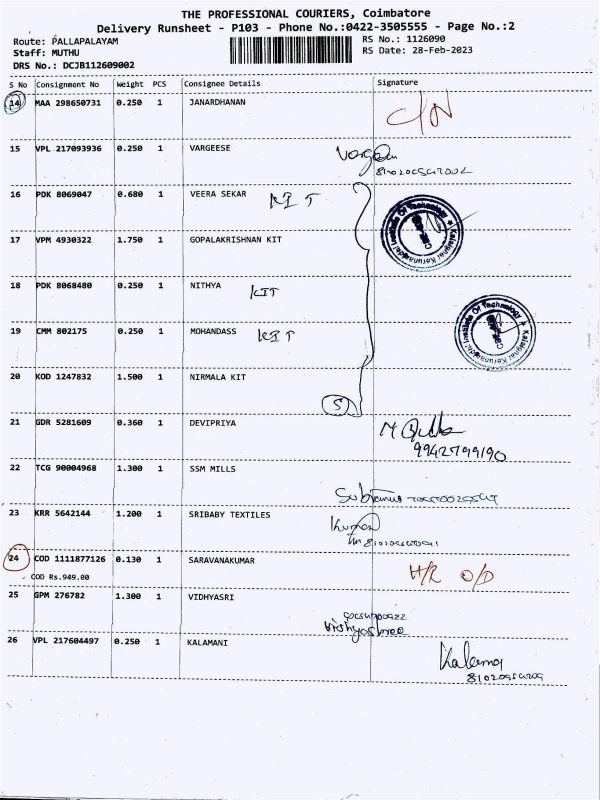 THE PROFESSIONAL COURIERS, Coimbatore
Delivery Runsheet - P103 - Phone No.:0422-3505555 - Page No.:2
Route: PALLAPALAYAM
RS No.: 1126090
Staff: MUTHU
RS Date: 28-Feb-2023
DRS No.: DCJB112609002
S No Consignment No Weight PCS Consignee Details Signature
14 MAA 298650731 0.250 1 JANARDHANAN C/N
15 VPL 217093936 0.250 1 VARGEESE
16 PDK 8069047 0.680 1 VEERA SEKAR KIT
Kalaignar Karunanidhi Institute Of Technology
17 VPM 4930322 1.750 1 GOPALAKRISHNAN KIT
18 PDK 8068480 0.250 1 NITHYA KIT
Kalaignar Karunanidhi Institute Of Technology
19 CMM 802175 0.250 1 MOHANDASS KIT
20 KOD 1247832 1.500 1 NIRMALA KIT
5
21 GDR 5281609 0.360 1 DEVIPRIYA
9942799190
22 TCG 90004968 1.300 1 SSM MILLS
23 KRR 5642144 1.200 1 SRIBABY TEXTILES
Kumar
24 COD 1111877126 0.130 1 SARAVANAKUMAR H/R O/D
COD Rs.949.00
25 GPM 276782 1.300 1 VIDHYASRI
26 VPL 217604497 0.250 1 KALAMANI